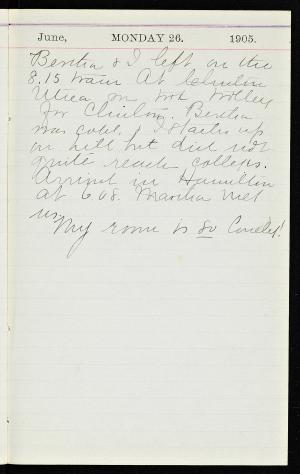 June, MONDAY 26. 1905.
Bertha & I left on the
8.15 train At
Utica we took trolley
for Clinton. Bertha
was cold. I started up
on hill but did not
quite reach college.
Arrived in Hamilton
at 6 08. Martha met
us.
My room is so